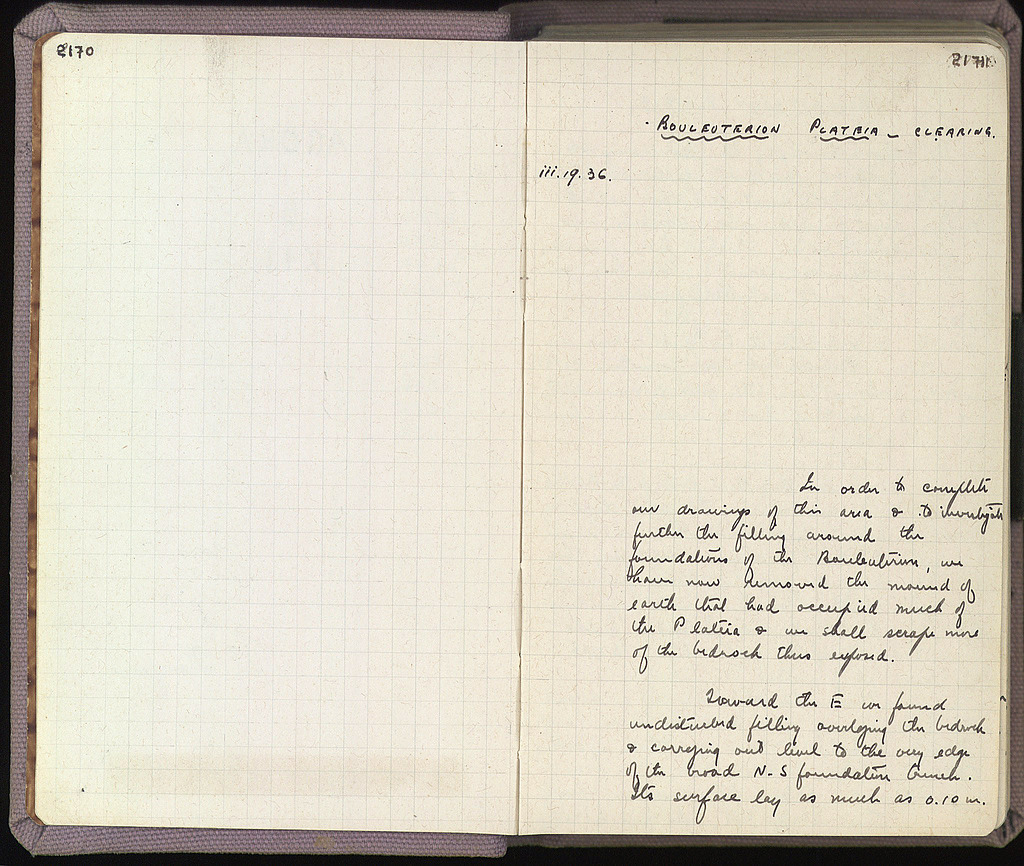 2170
2171
BOULEUTERION PLATEIA - CLEARING.
iii. 19. 36.
In order to complete
our drawings of this area & to investigate
further the filling around the
foundations of the Bouleuterion, we
have now removed the mound of
earth that had occupied much of
the Plateia & we shall scrape more
of the bedrock thus exposed.
Toward the E we found
undisturbed filling overlying the bedrock
& carrying out level to the very edge
of the broad N-S foundation trench.
Its surface lay as much as 0.10 m.